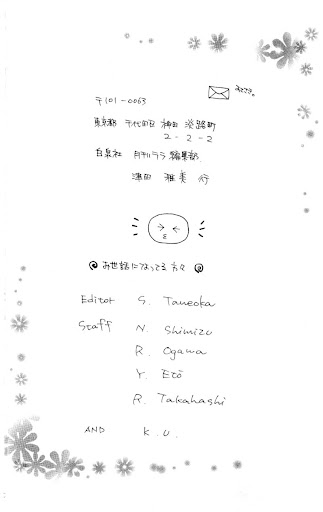 おたより。
〒101-0063
東京都 千代田区 神田 淡路町
2-2-2
白泉社 月刊ララ 編集部
津田 雅美 行
お世話になってる方々
Editor S. Taneoka
Staff N. Shimizu
R. Ogawa
Y. Etō
R. Takahashi
AND K.U.